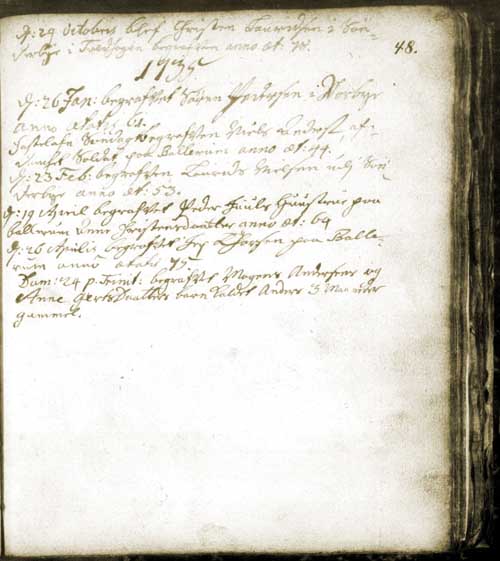 D: 29 Octobris blef Christen Lauridsen i Søn-
derbye i begrafven anno æt: 
48.
1735
D: 26 Jan: begrafvet Søfren Pedersen i Norbye
anno ætatis
Fastelafn Søndag begrafven Niels af-
Soldat paa Ballerum anno æt: 44.
D: 23 Feb: begrafven Laurids Nielsen udj Søn
derbye anno æt: 53.
D: 19 April begrafvet Peder Juuls Hustrue paa
ballerum Anne Christensdaatter anno æt: 64
D: 26 Aprilis begrafvet paa Balle-
rum anno ætatis 75
Dom: 24 p. Trinit: begrafvet Mogens Andersens og
Anne Gertsdaatters barn kaldet Anders 3 Maaneder
gammel.